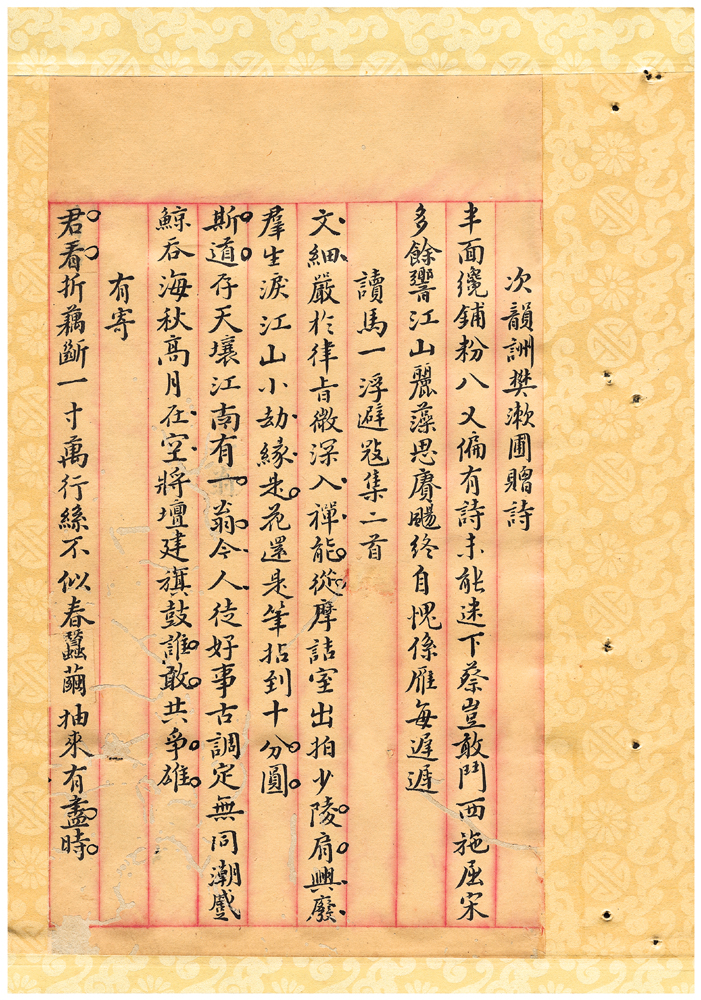 次韻詶樊漱圃贈詩
半面纔鋪粉八叉偏有詩未能迷下蔡豈敢鬥西施屈宋
多餘響江山麗藻思賡颺終自愧係雁每遲遲
讀馬一浮避寇集二首
文細嚴於律旨微深入禪能從摩詰室出拍少陵肩興廢
羣生淚江山小劫緣是花還是筆拈到十分圓
斯道存天壤江南有一翁今人徒好事古調定無同潮蹙
鯨吞海秋高月在空將壇建旗鼓誰敢共爭雄
有寄
君看折藕斷一寸萬行絲不似春蠶繭抽來有盡時